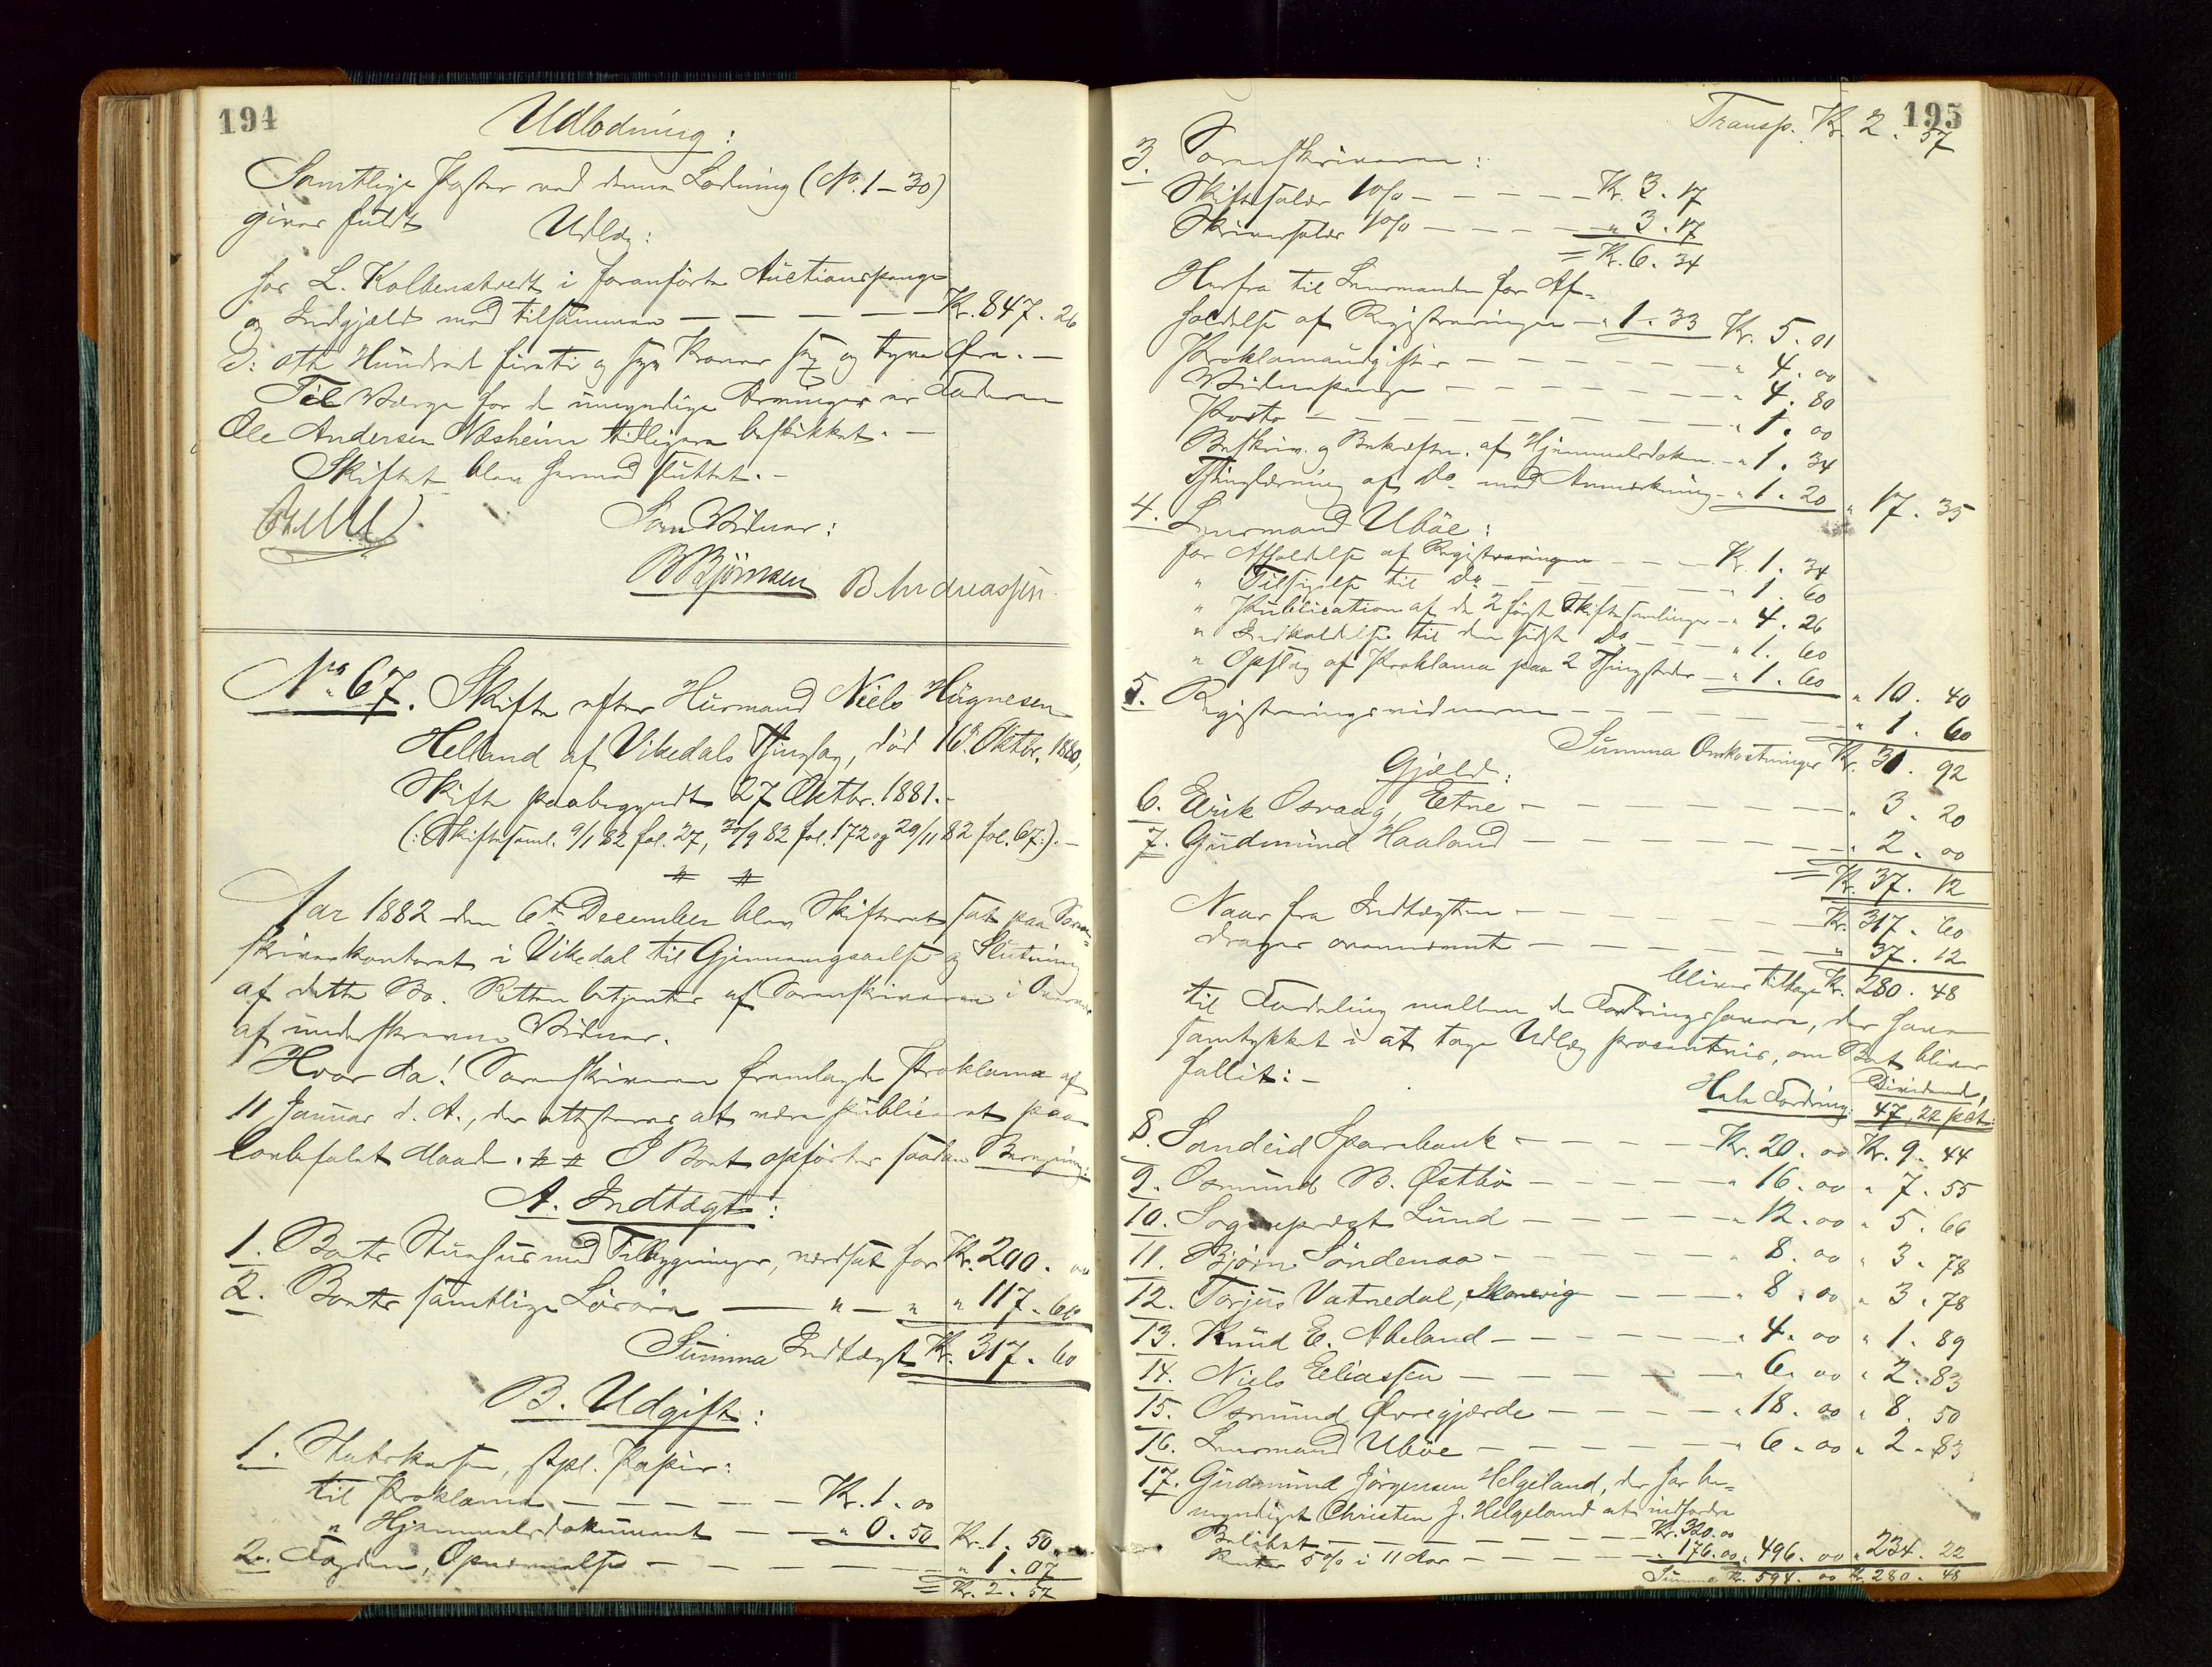 194
Udlodning:
Samtlige Poster ved denne Lodning (No. 1-30)
gives fuldt Udlæg:
for L. Kolbenstvedt i foranførte Auctionspenge
og Indgjæld med tilsammen — — — — — Kr. 847. 26
ɔ: otte Hundrede firti og syv Kroner sex og tyve Øre. —
Til Værge for de umyndige Arvinger er Faderen
Ole Andersen Næsheim tidligere beskikket. —
Skiftet blev hermed sluttet. —
Som Vidner:
B Björnsen B Andreassen.
No. 67. Skifte efter Husmand Niels Hügnesen
Helland af Vikedals Thinglag, död 16. Oktbr. 1880,
Skifte paabegyndt 27 Oktbr. 1881. —
(: Skiftesaml. 9/1 82 fol. 27, 30/9 82 fol. 172 og 29/11 82 fol. 67:). —
Aar 1882 den 6te December blev Skifteret sat paa Soren-
skriverkontoret i Vikedal til Gjennemgaaelse og Slutning
af dette Bo. Retten betjentes af Sorenskriveren i Overvær
af underskrevne Vidner.
Hvor da! Sorenskriveren fremlagde Proklama af
11 Januar d. A., der attesteres at være publiceret paa
lovbefalet Maade. I Boet opførtes saadan Beregning:
A. Indtægt:
1. Boets Stuehus med Tilbygninger, værdsat for Kr. 200. 00
2. Boets samtlige Løsøre — " — " " 117. 60
Summa Indtægt Kr. 317. 60
B. Udgift:
1. Statskassen, stpl. Papir:
til Proklama — — — — — Kr. 1. 00
" Hjemmelsdokument — — " 0. 50 Kr. 1. 50
2. Fogden, Opnævnelse — — — — — " 1. 07
= Kr. 2. 57
195
Transp. Kr. 2. 57
3. Sorenskriveren:
Skiftesalær 1 0/0 — — — — Kr. 3. 17
Skriversalær 1 0/0 — — — — " 3. 17
= Kr. 6. 34
Herfra til Lensmanden for Af-
holdelse af Registreringen — " 1. 33 Kr. 5. 01
Proklamaudgifter — — — — — " 4. 00
Vidnepenge — — — — — " 4. 80
Porto — — — — — " 1. 00
Beskriv. og Bekræftn. af Hjemmelsdokum. — " 1. 34
Thinglæsning af do. med Anmerkning — " 1. 20 " 17. 35
4. Lensmand Uböe:
for Afholdelse af Registreringen — — — Kr. 1. 34
" Tilsigelse til do — — — — — " 1. 60
" Publication af de 2 første Skiftesamlinger — " 4. 26
" Indkaldelse til den sidste do — — — " 1. 60
" Opslag af Proklama paa 2 Thingsteder — " 1. 60 " 10. 40
5. Registreringsvidnerne — — — — — " 1. 60
Summa Omkostninger Kr. 31. 92
Gjæld:
6. Eirik Osvaag, Etne — — — — — " 3. 20
7. Gudmund Haaland — — — — — " 2. 00
= Kr. 37. 12
Naar fra Indtægten — — — — — Kr. 317. 60
drages ovennævnte — — — — — " 37. 12
bliver tilbage Kr. 280. 48
til Fordeling mellem de Fordringshavere, der have
samtykket i at tage Udlæg procentvis, om Boet bliver
fallit: —
Hele Fordring: Dividende, 47,22 pCt.
8. Sandeid Sparebank — — — — Kr. 20. 00 Kr. 9. 44
9. Osmund B. Østbö — — — — " 16. 00 " 7. 55
10. Sogneprest Lund — — — — " 12. 00 " 5. 66
11. Bjørn Söndenaa — — — — " 8. 00 " 3. 78
12. Torjus Vatnedal, Skonevig — — — " 8. 00 " 3. 78
13. Knud E. Abeland — — — — " 4. 00 " 1. 89
14. Niels Eliassen — — — — " 6. 00 " 2. 83
15. Osmund Øvregjærde — — — — " 18. 00 " 8. 50
16. Lensmand Uböe — — — — " 6. 00 " 2. 83
17. Gudmund Jörgensen Helgeland, der har be-
myndiget Christen J. Helgeland at indfordre
Beløbet — — — — — Kr. 320. 00
Renter 5 0/0 i 11 Aar — — — — " 176. 00 " 496. 00 " 234. 22
Summa Kr. 594. 00 Kr. 280. 48